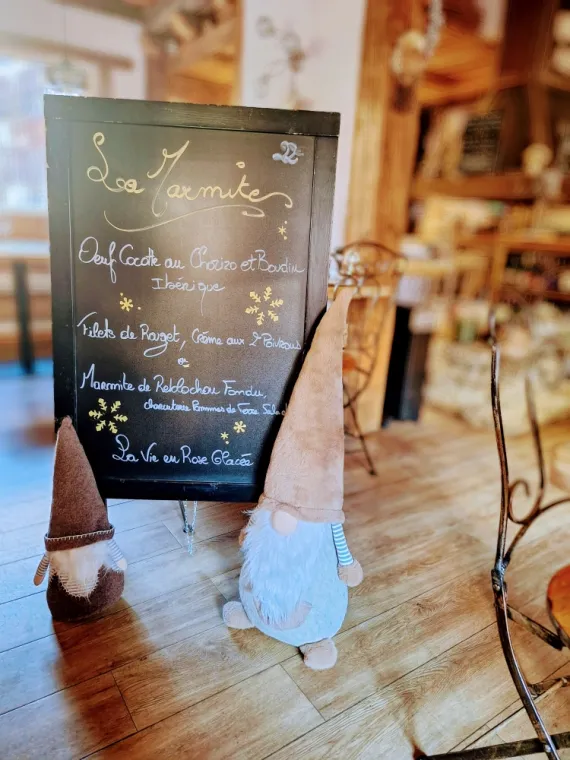 La Marmite
22
Oeuf Cocotte au Chorizo et Boudin
Ibérique
Filets de Rouget, Crème aux 2 Poivrons
ou
Marmite de Reblochon Fondu,
charcuterie Pommes de Terre, Salade
La Vie en Rose Glacée